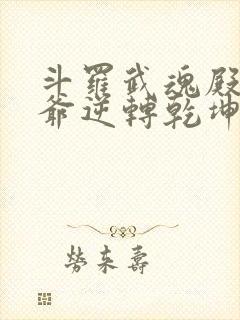 斗羅武魂殿
爺逆轉乾坤
勞來壽